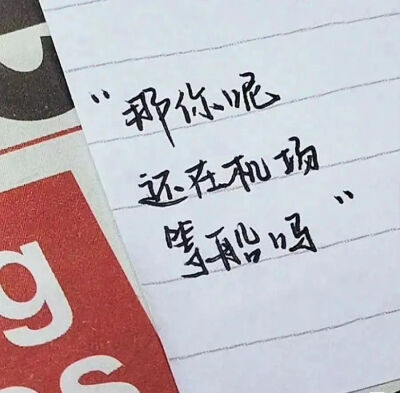 “那你呢
还在机场
等船吗”
g
es